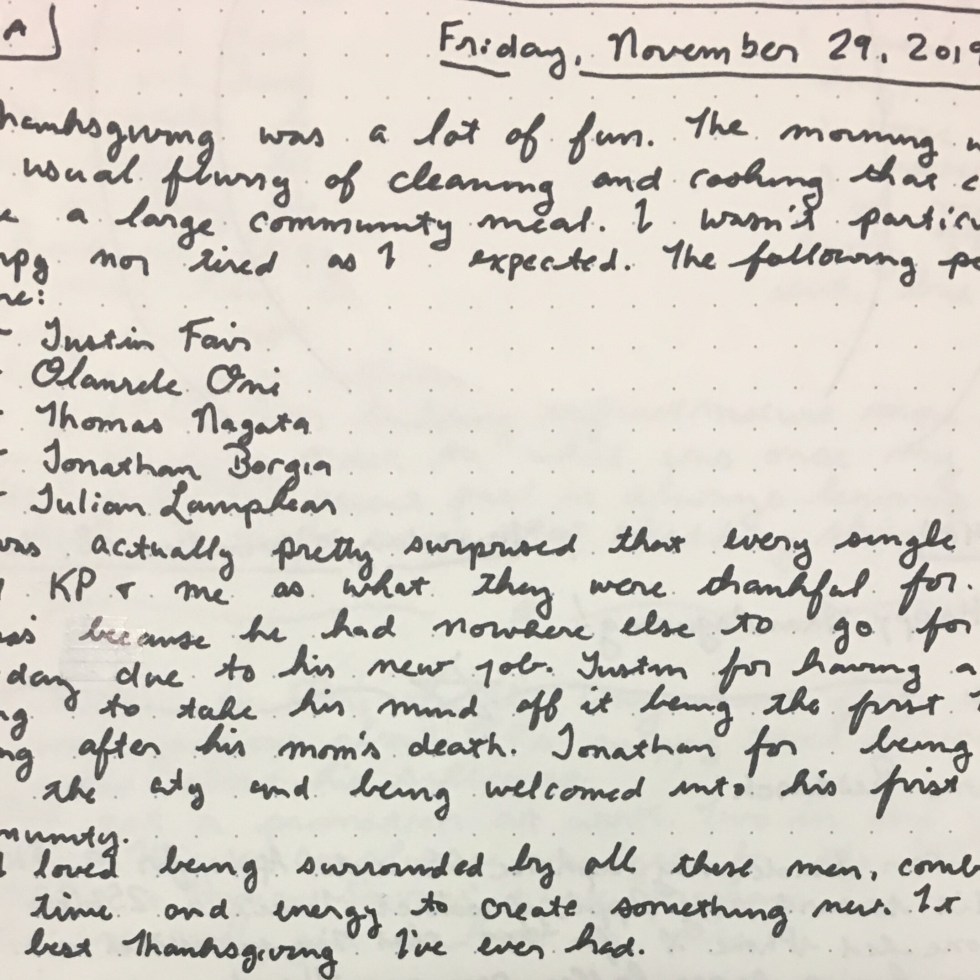 A
Friday, November 29, 2019
hanksgiving was a lot of fun. The morning w
usual flurry of cleaning and cooking that c
e a large community meal. I wasn't partic
mpy nor tired as I expected. The following pe
re:
- Justin Fair
- Olanrele Oni
- Thomas Nagata
- Jonathan Borgia
- Julian Lamphear
was actually pretty surprised that every single
KP & me as what they were thankful for.
as' because he had nowhere else to go for
day due to his new job. Justin for having a
ng to take his mind off it being the first
ng after his mom's death. Jonathan for being
the city and being welcomed into his first
munity.
I loved being surrounded by all these men, comb
time and energy to create something new. It
best Thanksgiving I've ever had.